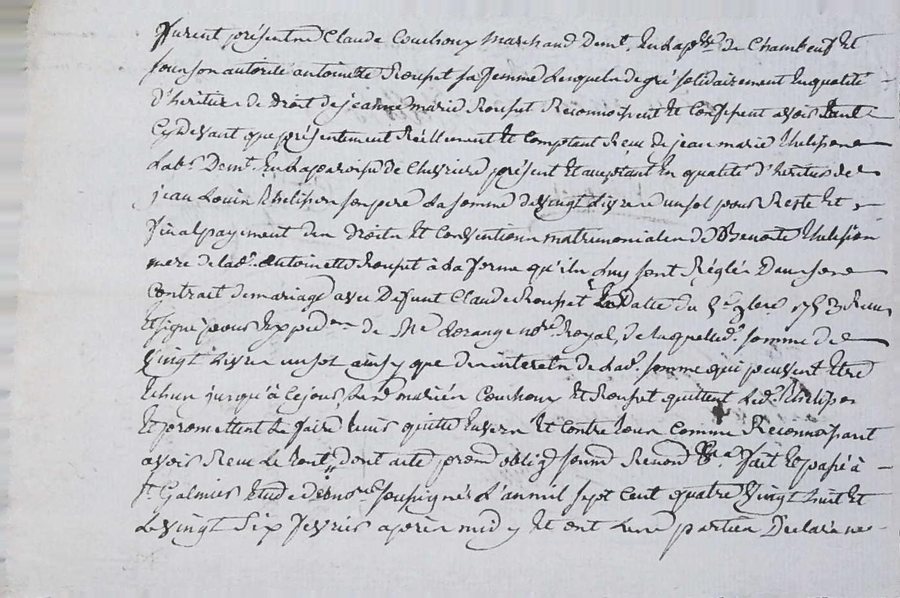 furent présentre Claude Couchoux Marchand demt. En La pse. de Chambeuf Et
sous son autorité antoinette Roupet sa femme Lesquels de gré solidairement En qualité
d'heritiere de droit de jeanne marie Roupet Reconnoissent Et Confessent avoir tant
Cy devant que présentement Réellement Et Comptant Recu de jean marie Philipon
Labr. demt. En La paroisse de Chevrier présent Et acceptant En qualité d'heritier de
jean Louis Philipon son pere La somme de vingt Livre un sol pour Reste Et
final payement des droits Et Conventions matrimoniales de Benoite Philipon
mere de lad. antoinette Roupet à La forme qu'ils Luy sont Réglés dans son
Contrat de mariage avec defunt Claude Roupet En datte du 5e. 9bre. 1753 Recu
Et signé pour Expedon. de Me Lorange nore. Royal, de Laquelle d. somme de
vingt Livre un sol ainsy que des interets de Lad. somme qui peuvent Etre
Echus jusqu'à Ce jour Lesd mariés Couchoux Et Roupet quittent Led. Philipon
Et promettent Le faire tenir quitte Envers Et Contre tous Comme Reconnoissant
avoir Recu Le tout, dont acte prom oblig soum Renond &a fait Et passé à
St. Galmier Etude des nores soussignés L'an mil sept Cent quatre vingt huit Et
Le vingt Six fevrier après midy Et ont Les partien déclaré ne